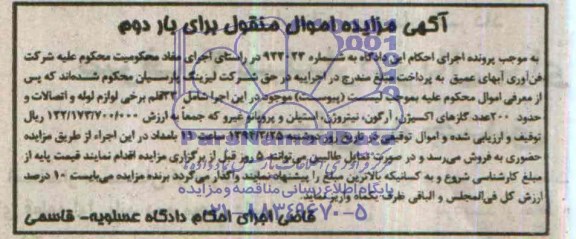 آگهی مزایده اموال منقول برای بار دوم
به موجب پرونده اجرای احکام این دادگاه به شماره ۹۳۳۰۲۳ در راستای اجرای مفاد محکومیت محکوم علیه شرکت
فن‌آوری آبهای عمیق به پرداخت مبلغ مندرج در اجراییه در حق شرکت لیزینگ پارسیان محکوم شده‌اند که پس
از معرفی اموال محکوم علیه بموجب لیست (پیوست) موجود در این اجرا شامل قلم برخی لوازم لوله و اتصالات و
حدود ۲۰۰عدد گازهای اکسیژن، آرگون، نیتروژن، استیلن و پروپانو غیرو که جمعا به ارزش ۱۳۲/۱۷۳/۷۰۰/۰۰۰ ریال
توقیف و ارزیابی شده و اموال توقیفی در تاریخ روز دوشنبه ۱۳۹۴/۳/۲۵ ساعت ۱۱ بامداد در این اجرا از طریق مزایده
حضوری به فروش می‌رسد و در صورت تمایل طالبین می‌توانند ۵ روز قبل از برگزاری مزایده اقدام نمایند قیمت پایه از
مبلغ کارشناسی شروع و به کسانیکه بالاترین مبلغ را پیشنهاد نمایند واگذار می‌گردد برنده مزایده می‌بایست ۱۰ درصد
ارزش کل فی‌المجلس و الباقی ظرف یکماه واریز نماید.
پایگاه اطلاع رسانی مناقصه و مزایده
قاضی اجرای احکام دادگاه عسلویه- قاسمی
۰۲۱-۸۸۳۴۹۶۷۰-۵